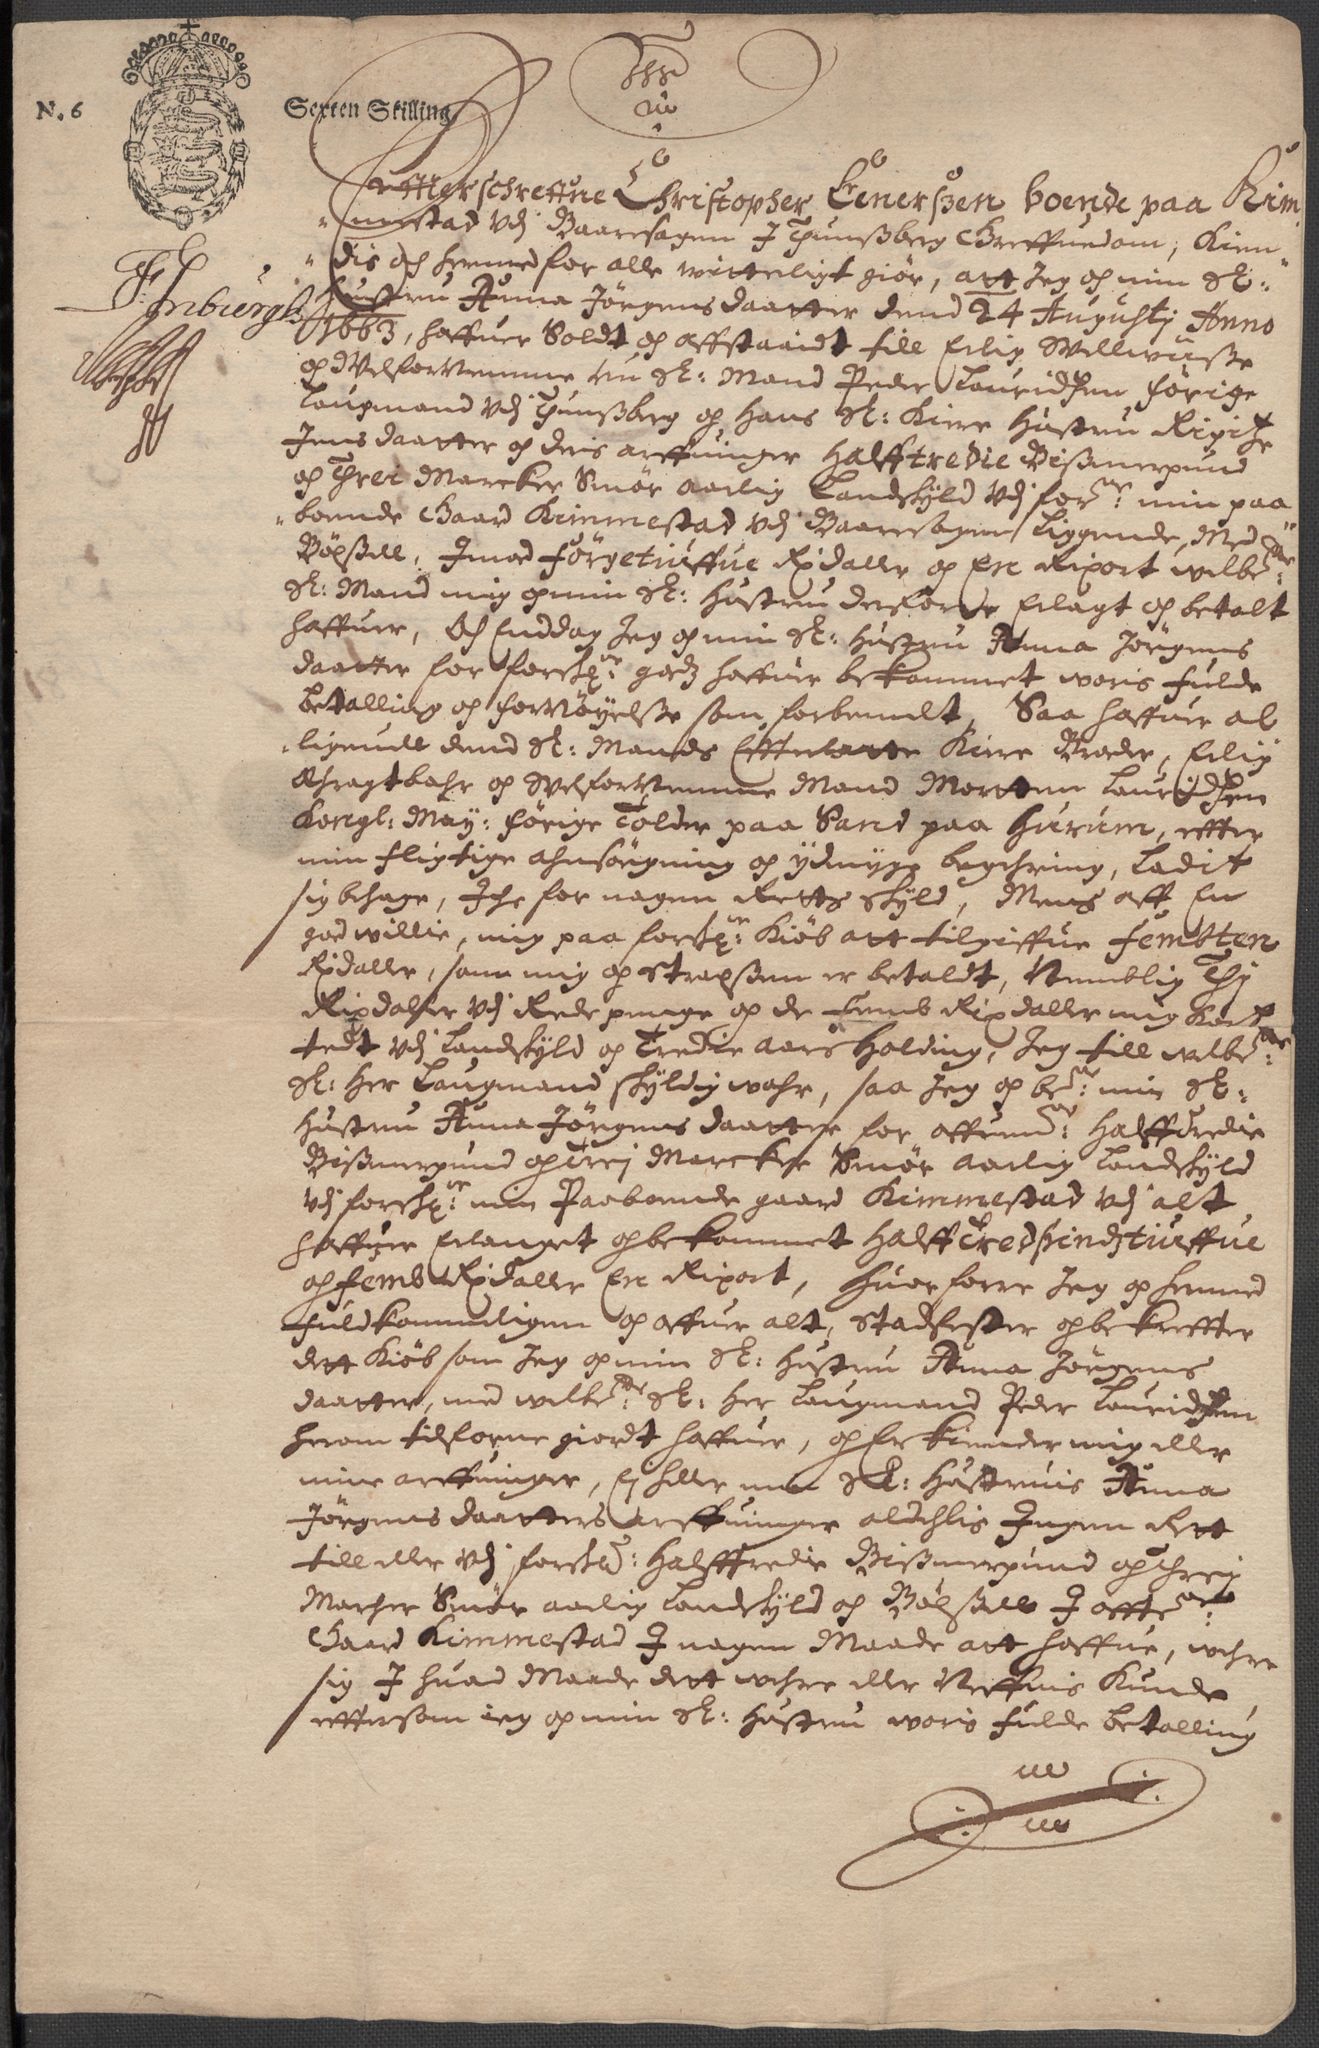 N. 6
Sexten Skilling
Efftterschreffne Christopher Einerßen boende paa Kim
mestad Vdj Baaresagen J Thunßberg Greffuedom, Kien
dis och hermed for alle witterligt giör, att Jeg och min Sl:
hustru Anna Jörgens daatter dend 24 Augustj Anno
1663, haffuer Soldt och affstaaidt till Erlig Wellwüße
och Welfornemme nu Sl: Mand Peder Lauridßen förige
Laugmand Vdj Thunßberg och hans Kiere Hustru
Jens daatter och deris arffuinger Halfftredie Bißmerpund
och Threi Marcker Smör aarlig Landskyld Vdj forne: min paa
boende Gaard Kimmestad Vdj Baaresagen liggende, Med
Böxell, Jmod Förgetiuffue Rixdaller och En Rixort welbete:
Sl: Mand mig och min Sl: Hustru derforre Erlagt och betalt
haffuer, Och Enddog Jeg och min Sl: Hustru Anna Jörgens
daatter for forsche: godz haffuer bekommet woris fulde
betalling och fornöyelse som forbemelt, Saa haffuer al
ligeuell dend Sl: Mands Effterlatte Kiere Broder, Erlig
Achragtbahr och Welfornemme Mand Morten Lauridßen
Kongl: May: förige Tolder paa Sand paa Hurum, effter
min fligtige ahnsögning och ÿdmyge begehring, ladit
sig behage, Iche for nagen Retts skÿld, Mens aff En
god willie, mig paa forsche: Kiöb att tilgiffue Fembten
Rixdaller, som mig och straxen er betaldt, Nemblig Thj
Rixdaller Vdj Rede penge och de Femb Rixdaller mig kort
tedt Vdj Landskÿld och Tredie aars Holding, Jeg till welbete:
Sl: Her Laugmand skÿldig wahr, saa Jeg och bete: min Sl:
Hustru Anna Jörgens daatter for offuen: Halfftredie
Bißmerpund och Trej Marcker Smör aarlig Landskÿld
Vdj forsche: min Paaboende gaard Kimmestad Vdj alt
haffuer Erlanget och bekommet Halfftredsindstiuffue
och femb Rixdaller En Rixort, Huorforre Jeg och hermed
fuldkommeligen och offuer alt, Stadfester och bekreffter
dett Kiöb som Jeg och min Sl: Hustru Anna Jörgens
daatter, med welbete: Sl: Her Laugmand Peder Lauridßen
herom tilforne giordt haffuer, och Er Kiender mig eller
mine arffuinger, Ej heller min Sl: Hustruis Anna
Jörgens daatters arffuinger aldelis Ingen Rett
till eller Vdj forsche: Halfftredie Bißmerpund och Threj
Marcher Smör aarlig Landskÿld och Böxell J offte:
Gaard Kimmestad J nagen Maade att haffue, wehre
sig J huad Maade dett wehre eller Neffnis Kunde
efftersom ieg och min Sl: Hustru woris fulde betalling